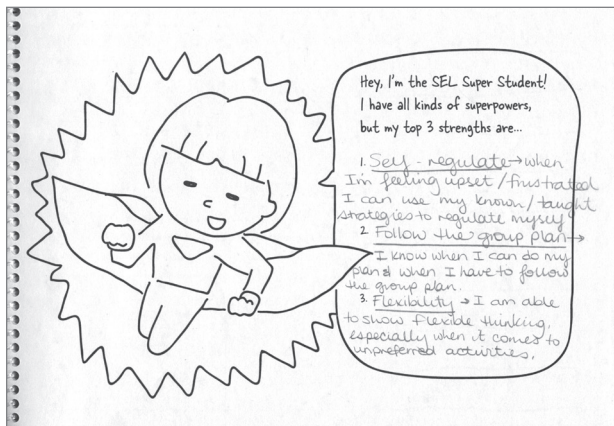 Hey, I'm the SEL Super Student!
I have all kinds of superpowers,
but my top 3 strengths are...
1. Self-regulate → when
I'm feeling upset/frustrated
I can use my known/taught
strategies to regulate myself
2. Follow the group plan →
I know when I can do my
plan & when I have to follow
the group plan.
3. Flexibility → I am able
to show flexible thinking,
especially when it comes to
unpreferred activities.